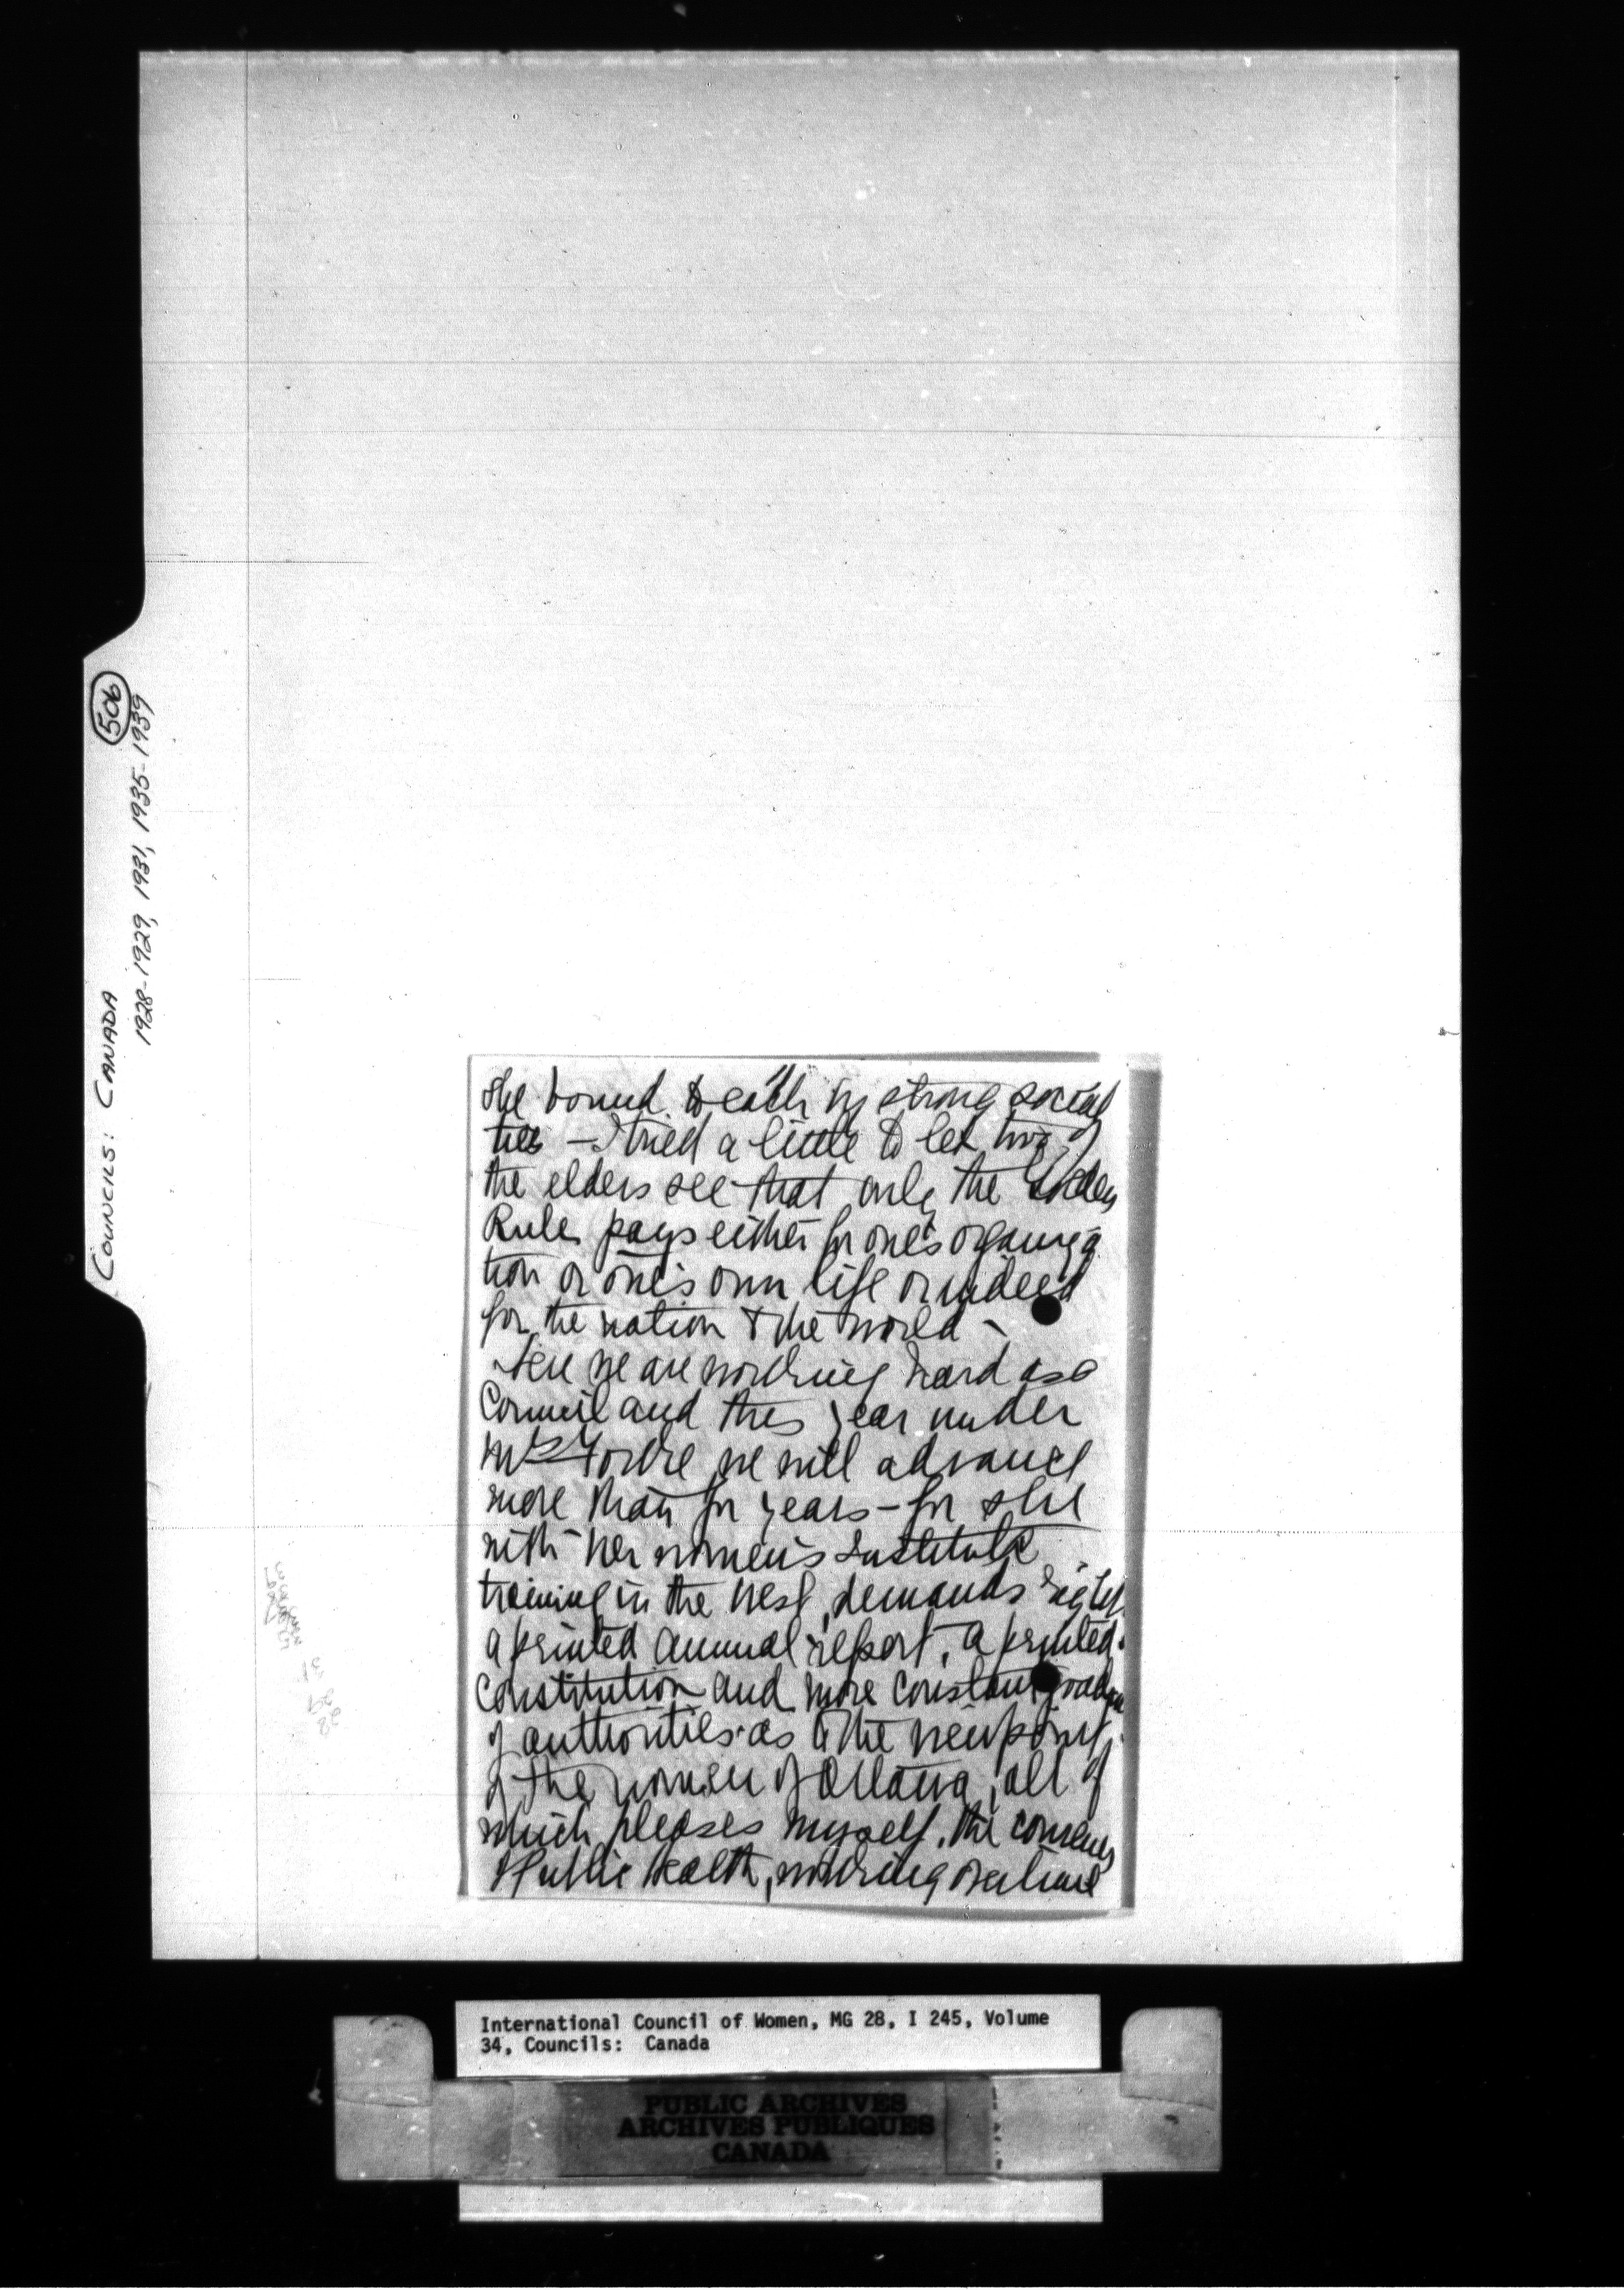 COUNCILS: CANADA
506
1928-1929, 1931, 1935-1939
she bound to each by strong social
ties – I tried a little to let two of
the elders see that only the Golden
Rule pays either for one's organiza
tion or one's own life or indeed
for the nation & the world –
Here we are working hard as a
Council and this year under
Mrs we will advance
more than for years – for she
with her women's Institute
training in the West, demands
a printed annual report, a printed
constitution and more constant
of authorities as to the viewpoint
of the women of Ottawa, all of
which pleases myself, the convener
Public Health, working overtime
International Council of Women, MG 28, I 245, Volume
34, Councils: Canada
PUBLIC ARCHIVES
ARCHIVES PUBLIQUES
CANADA